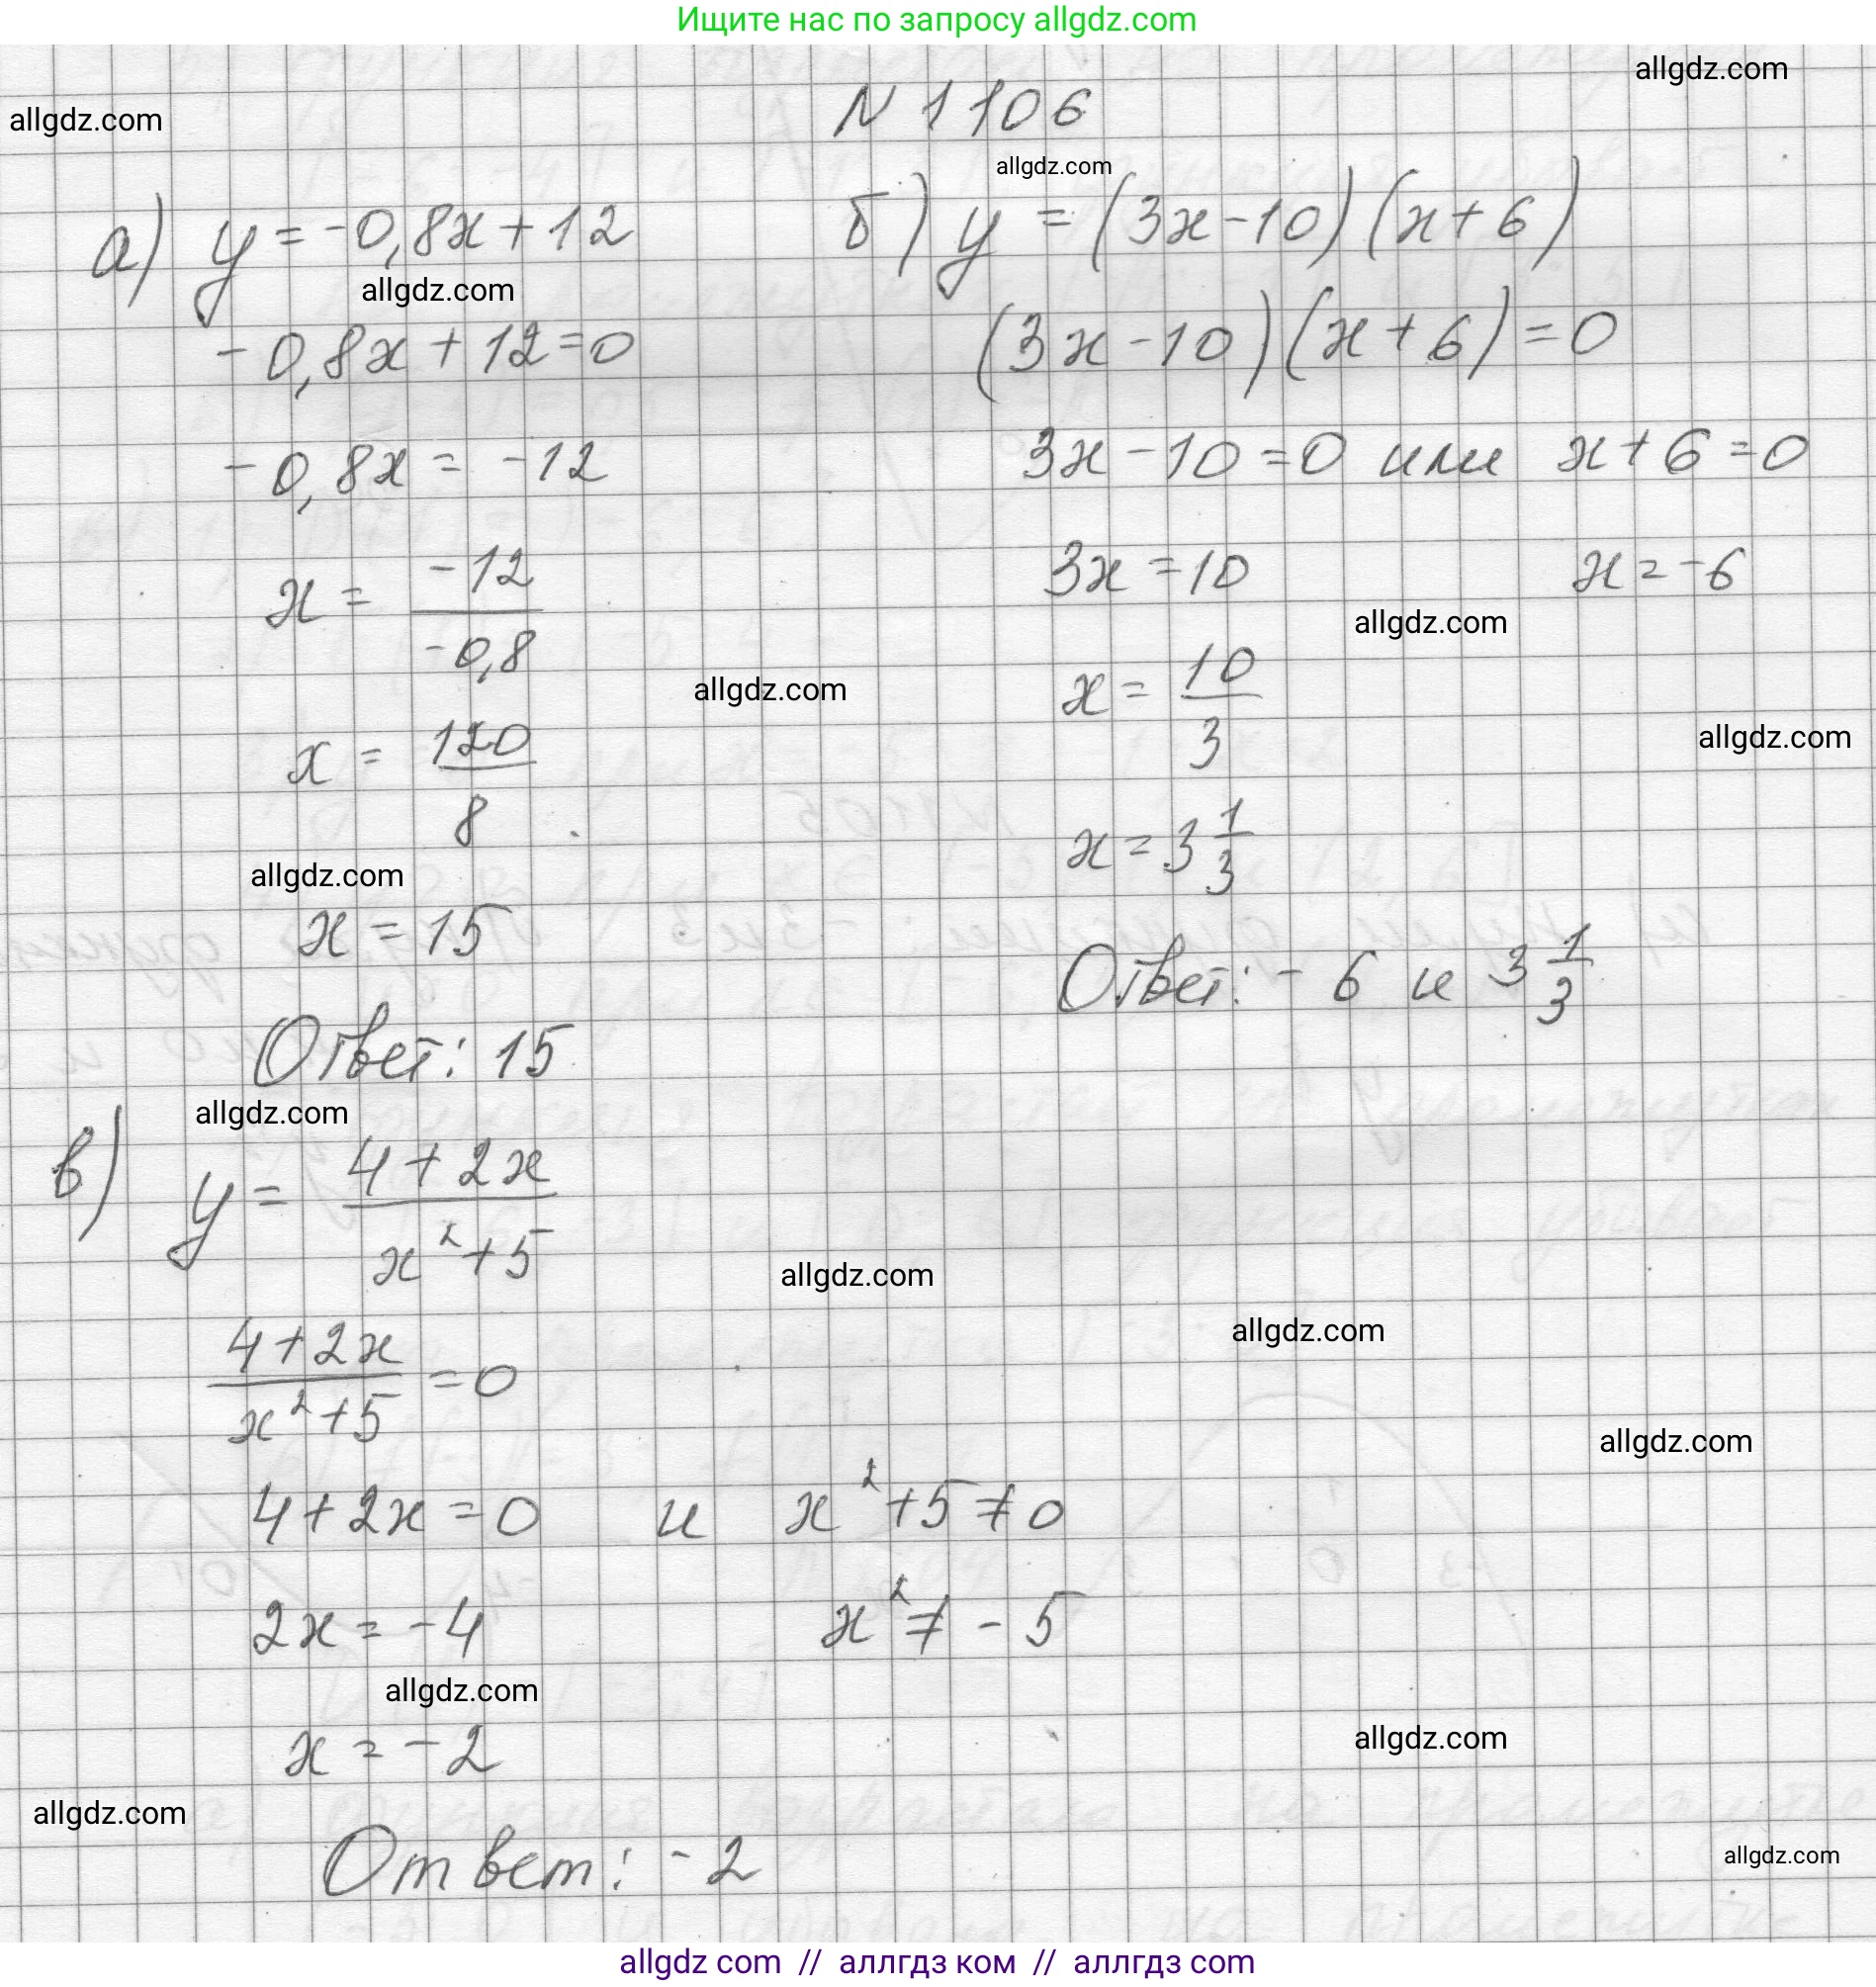 Ищите нас по запросу allgdz.com
allgdz.com
allgdz.com
N 1106
allgdz.com
а) y = -0,8x + 12
allgdz.com
-0,8x + 12 = 0
-0,8x = -12
x = -12/-0,8
x = 120/8
allgdz.com
x = 15
Ответ: 15
б) y = (3x - 10)(x + 6)
(3x - 10)(x + 6) = 0
3x - 10 = 0 или x + 6 = 0
3x = 10 x = -6
allgdz.com
allgdz.com
x = 10/3
allgdz.com
x = 3 1/3
Ответ: -6 и 3 1/3
allgdz.com
в) y = 4 + 2x / x² + 5
allgdz.com
allgdz.com
4 + 2x / x² + 5 = 0
allgdz.com
4 + 2x = 0 и x² + 5 ≠ 0
2x = -4 x² ≠ -5
allgdz.com
x = -2
allgdz.com
allgdz.com
Ответ: -2
allgdz.com
allgdz com // аллгдз ком // аллгдз com